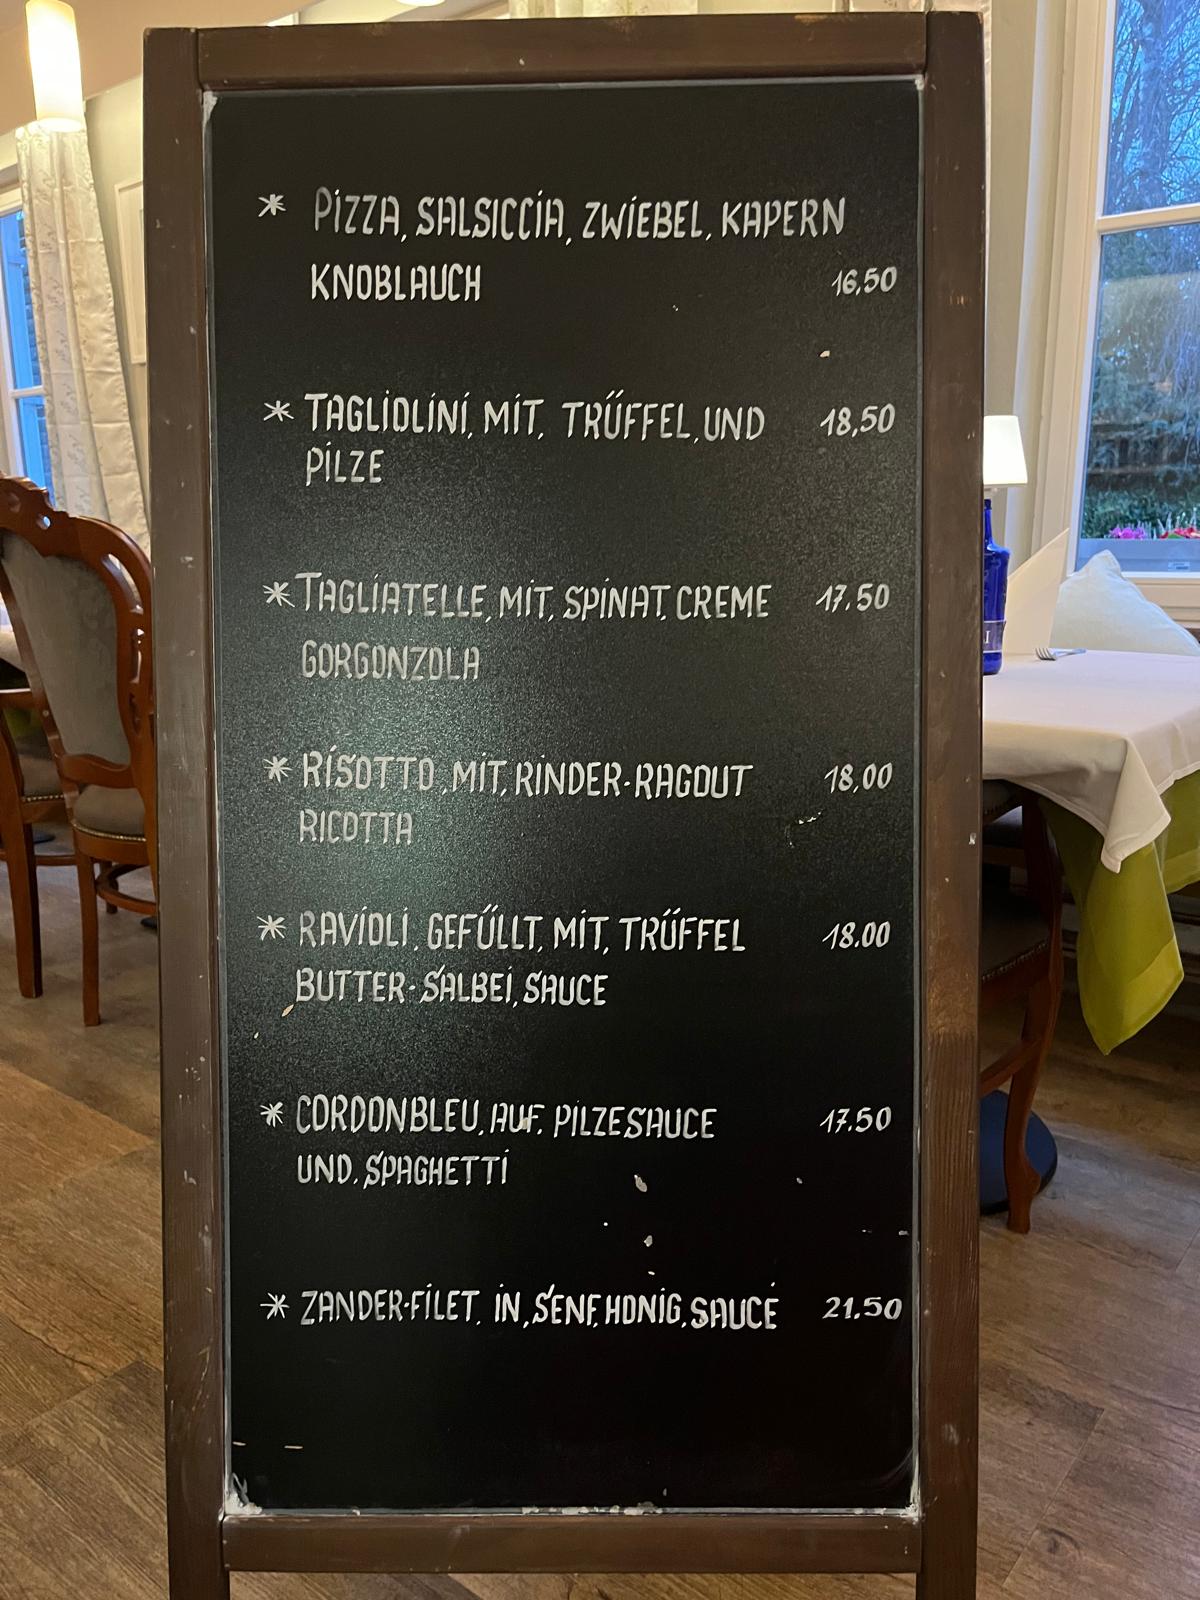 * PIZZA, SALSICCIA, ZWIEBEL, KAPERN
KNOBLAUCH 16,50
* TAGLIOLINI, MIT, TRÜFFEL, UND 18,50
PILZE
* TAGLIATELLE, MIT, SPINAT, CREME 17.50
GORGONZOLA
* RISOTTO, MIT, RINDER-RAGOUT 18,00
RICOTTA
* RAVIOLI, GEFÜLLT, MIT, TRÜFFEL 18.00
BUTTER-SALBEI, SAUCE
* CORDONBLEU, AUF, PILZESAUCE 17.50
UND, SPAGHETTI
* ZANDER-FILET, IN, SENF, HONIG, SAUCE 21.50